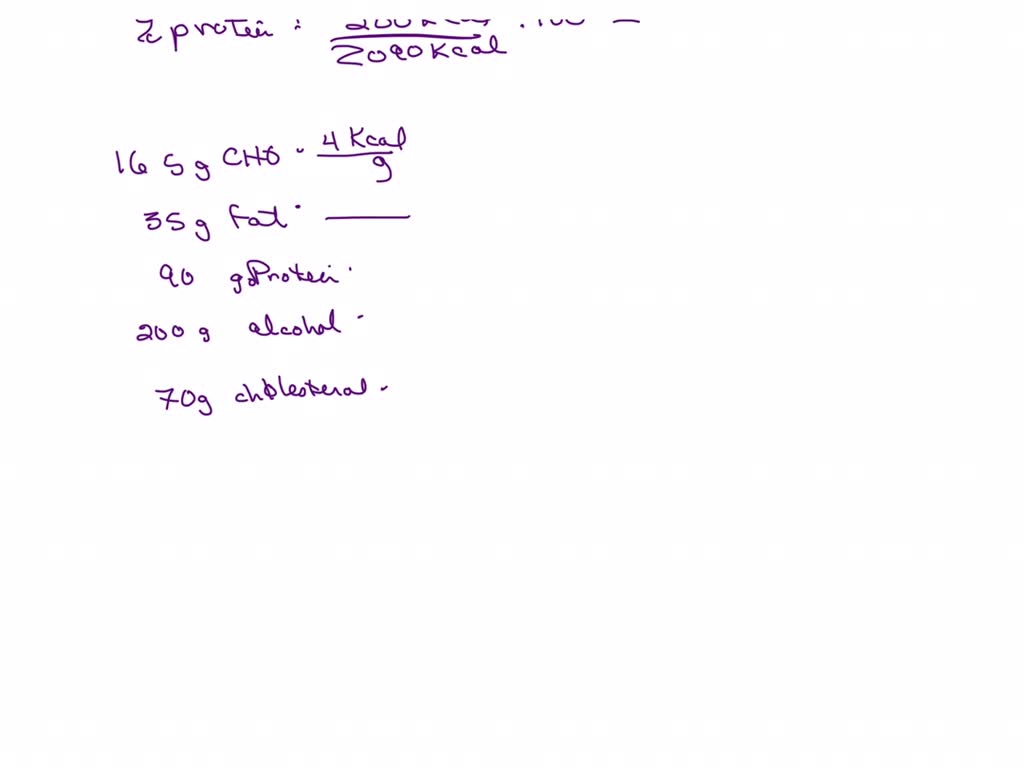 % protein :
2090 Kcal
165 g CHO · 4 Kcal
g
35 g fat ·
90 g Protein ·
200 g alcohol ·
70g cholesterol ·